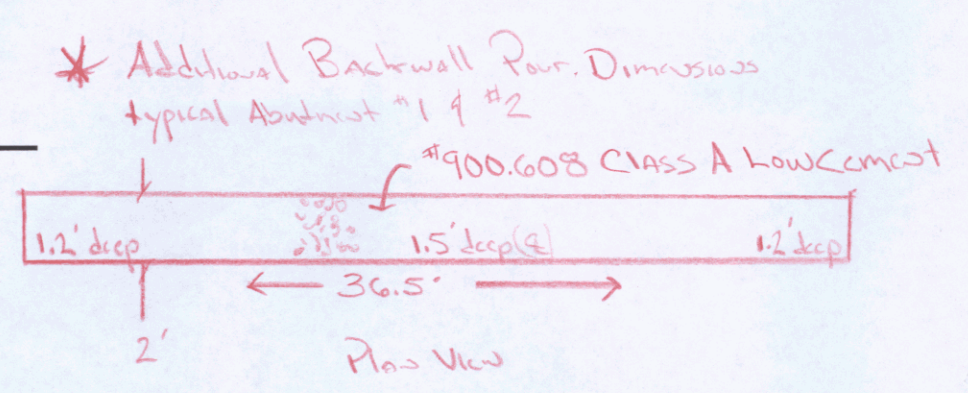 * Additional Backwall Pour. Dimensions
typical Abutment #1 & #2
#900.608 Class A Low Cement
1.2' deep
1.5' deep (℄)
1.2' deep
36.5'
2'
Plan View